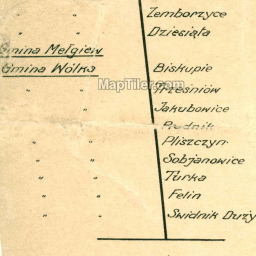 " " Zemborzyce
" " Dziesiąta
Gmina Mełgiew
Gmina Wólka Biskupie
" " Trześniów
" " Jakubowice
" " Rudnik
" " Pliszczyn
" " Sobjanowice
" " Turka
" " Felin
" " Świdnik Duży
MapTiler.com